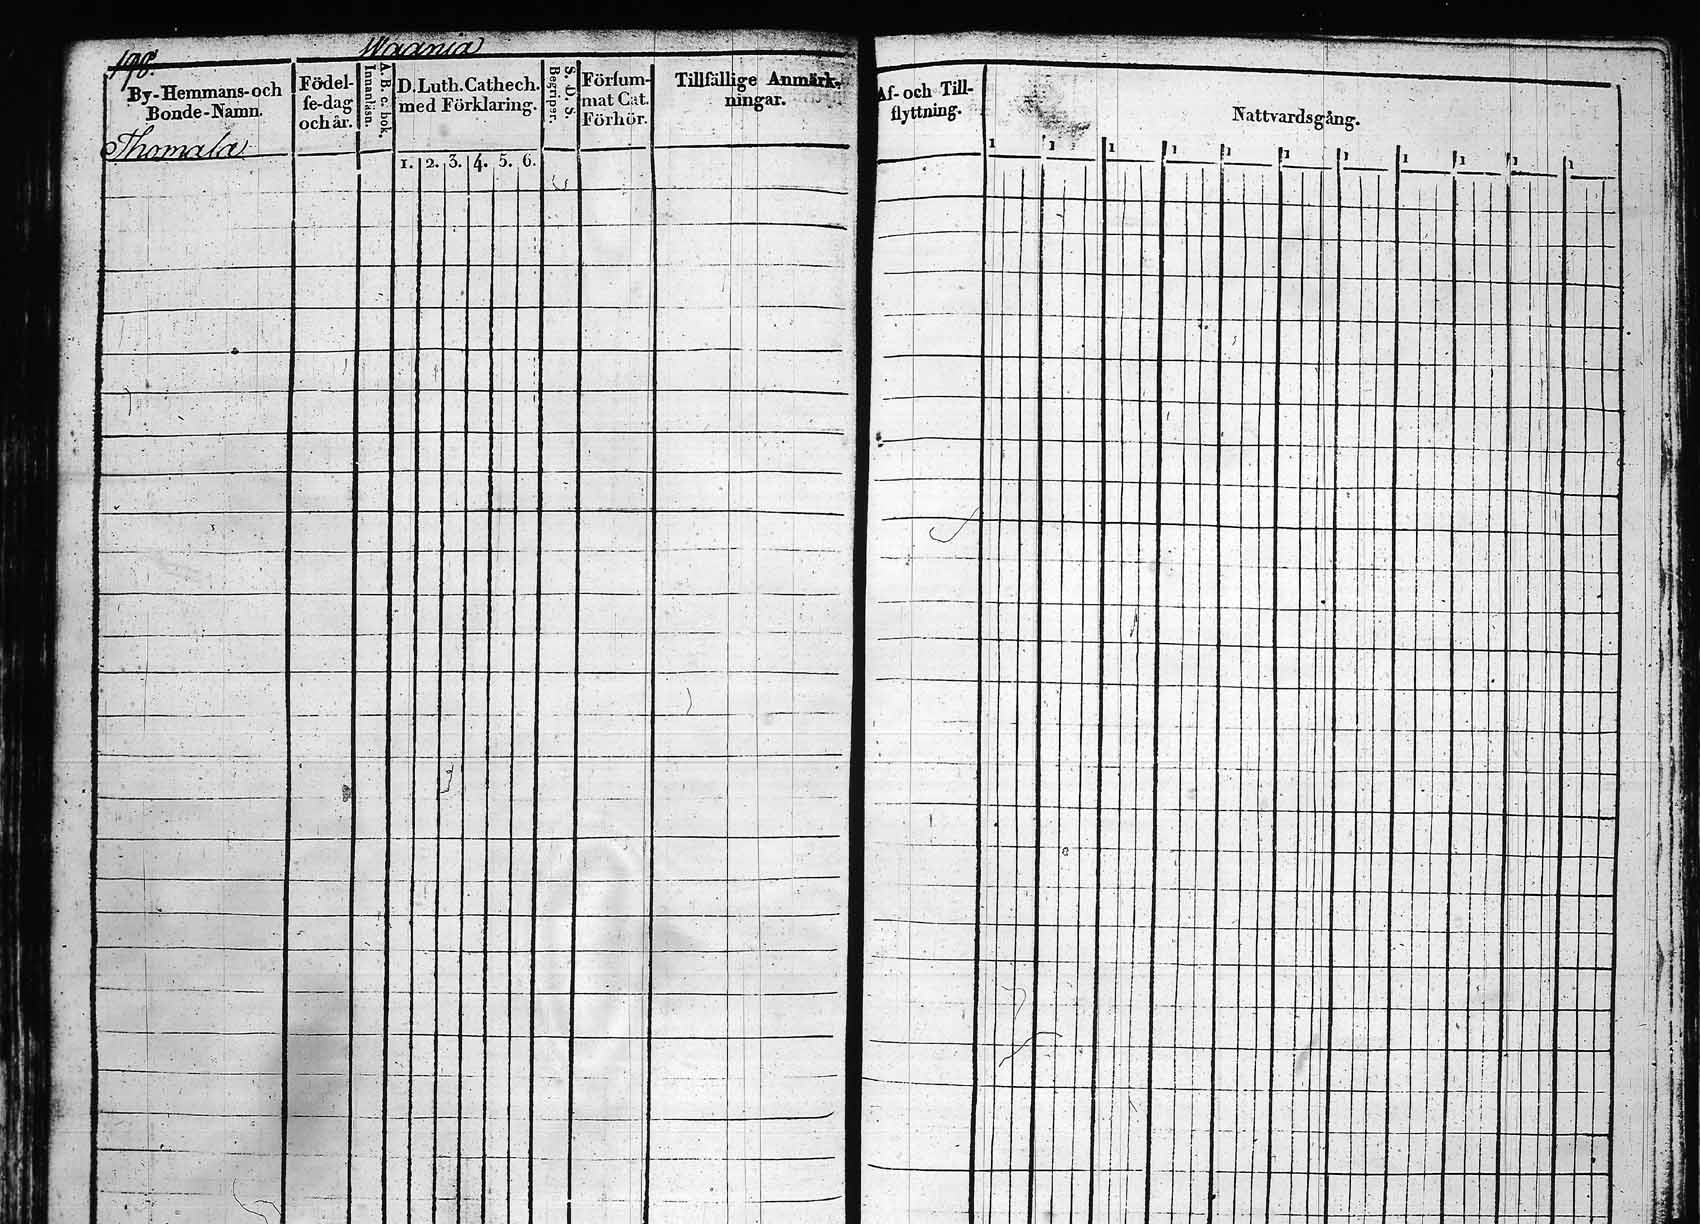 198.
Waania
By-Hemmans-och
Bonde-Namn.
Födel-
se-dag
och år.
A. B. c. bok.
Innanläsn.
D. Luth. Cathech.
med Förklaring.
1. 2. 3. 4. 5. 6.
S. D. S.
Begriper.
Försum-
mat Cat.
Förhör.
Tillfällige Anmärk-
ningar.
Thomala
Af- och Till-
flyttning.
Nattvardsgång.
1 1 1 1 1 1 1 1 1 1 1